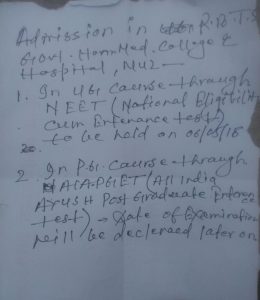 Admission in R.B.T.S
Govt. Homo Med. College &
Hospital, Muz —
1. In UG Cause through
NEET (National Eligibility
cum Enterance test)
to be held on 06/05/18
2. In P.G. Cause through
AIAPGET (All India
Ayush Post Graduate Enterence
test) → Date of Examination
will be declered later on